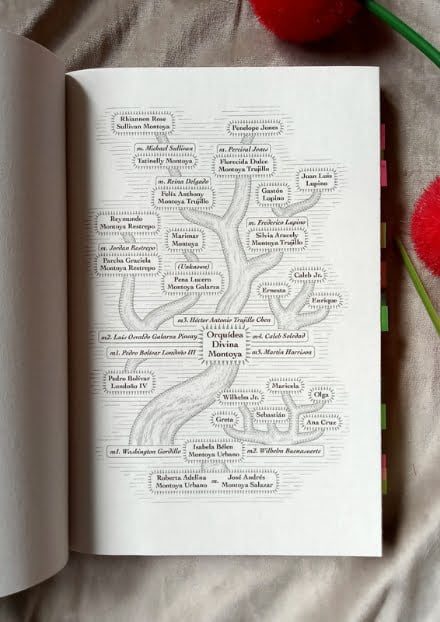 Rhiannon Rose
Sullivan Montoya
Penelope Jones
m. Michael Sullivan
Tatinelly Montoya
m. Percival Jones
Florecida Dulce
Montoya Trujillo
m. Reina Delgado
Félix Anthony
Montoya Trujillo
Gastón
Lupino
Juan Luis
Lupino
Reymundo
Montoya Restrepo
m. Jordan Restrepo
Parcha Graciela
Montoya Restrepo
Marimar
Montoya
m. Frederico Lupino
Silvia Aracely
Montoya Trujillo
(Unknown)
Pena Lucero
Montoya Galarza
Caleb Jr.
Ernesta
Enrique
m3. Héctor Antonio Trujillo Chen
m2. Luis Osvaldo Galarza Pincay
Orquídea
Divina
Montoya
m4. Caleb Soledad
m1. Pedro Bolívar Londoño III
m5. Martin Harrison
Pedro Bolívar
Londoño IV
Maricela
Wilhelm Jr.
Olga
Greta
Sebastián
Ana Cruz
m1. Washington Gordillo
Isabela Belén
Montoya Urbano
m2. Wilhelm Buenasuerte
Roberta Adelina
Montoya Urbano
m.
José Andrés
Montoya Salazar